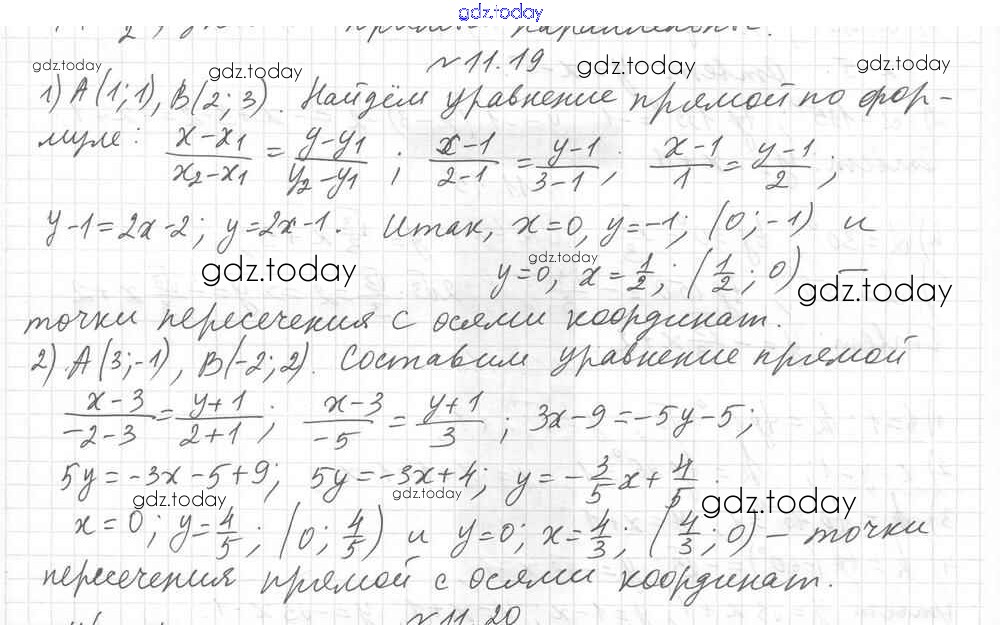 gdz.today
№ 11.19
gdz.today gdz.today gdz.today gdz.today
1) A(1; 1), B(2; 3). Найдём уравнение прямой по фор-
муле: (x-x₁)/(x₂-x₁) = (y-y₁)/(y₂-y₁); (x-1)/(2-1) = (y-1)/(3-1); (x-1)/1 = (y-1)/2;
y-1=2x-2; y=2x-1. Итак, x=0, y=-1; (0; -1) и
gdz.today gdz.today
y=0, x=1/2; (1/2; 0) –
gdz.today
точки пересечения с осями координат.
2) A(3; -1), B(-2; 2). Составим уравнение прямой
(x-3)/(-2-3) = (y+1)/(2+1); (x-3)/(-5) = (y+1)/3; 3x-9=-5y-5;
5y=-3x-5+9; 5y=-3x+4; y=-3/5x+4/5.
gdz.today gdz.today gdz.today
x=0; y=4/5; (0; 4/5) и y=0; x=4/3; (4/3; 0) – точки
пересечения прямой с осями координат.
№ 11.20